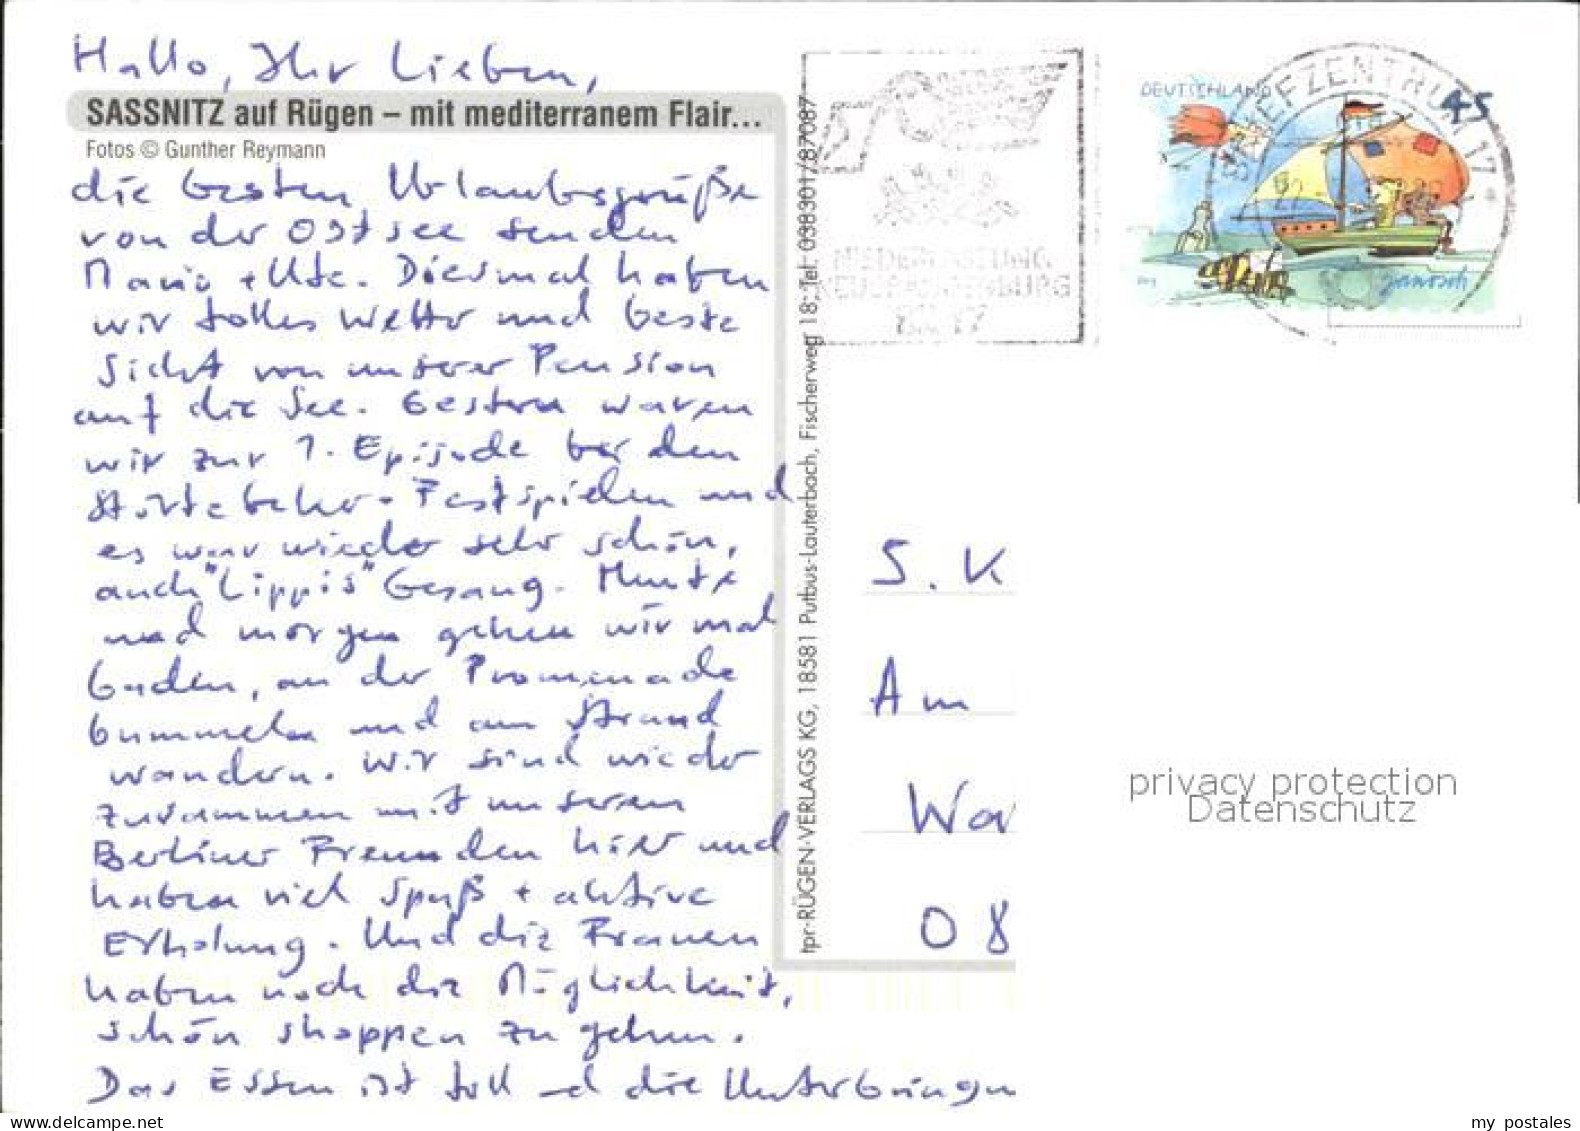 Hallo, Ihr Lieben,
SASSNITZ auf Rügen – mit mediterranem Flair...
Fotos © Gunther Reymann
die besten Urlaubsgrüße
von der Ostsee senden
Mario + Ute. Diesmal haben
wir tolles Wetter und beste
Sicht von unserer Pension
auf die See. Gestern waren
wir zur 1. Episode bei den
Störtebeker-Festspielen und
es war wieder sehr schön,
auch "Lippis" Gesang. Heute
und morgen gehen wir mal
baden, an der Promenade
bummeln und am Strand
wandern. Wir sind wieder
zusammen mit unseren
Berliner Freunden hier und
haben viel Spaß + aktive
Erholung. Und die Frauen
haben noch die Möglichkeit,
schön shoppen zu gehen.
Das Essen ist toll und die Unterbringun
tpr-RÜGEN-VERLAGS KG, 18581 Putbus-Lauterbach, Fischerweg 18, Tel. 038301/87087
NIEDERLASSUNG
NEUBRANDENBURG
BZ 17
DEUTSCHLAND
45
janosch
BRIEFZENTRUM 17
S. K
Am
Wa
08
privacy protection
Datenschutz
my postales